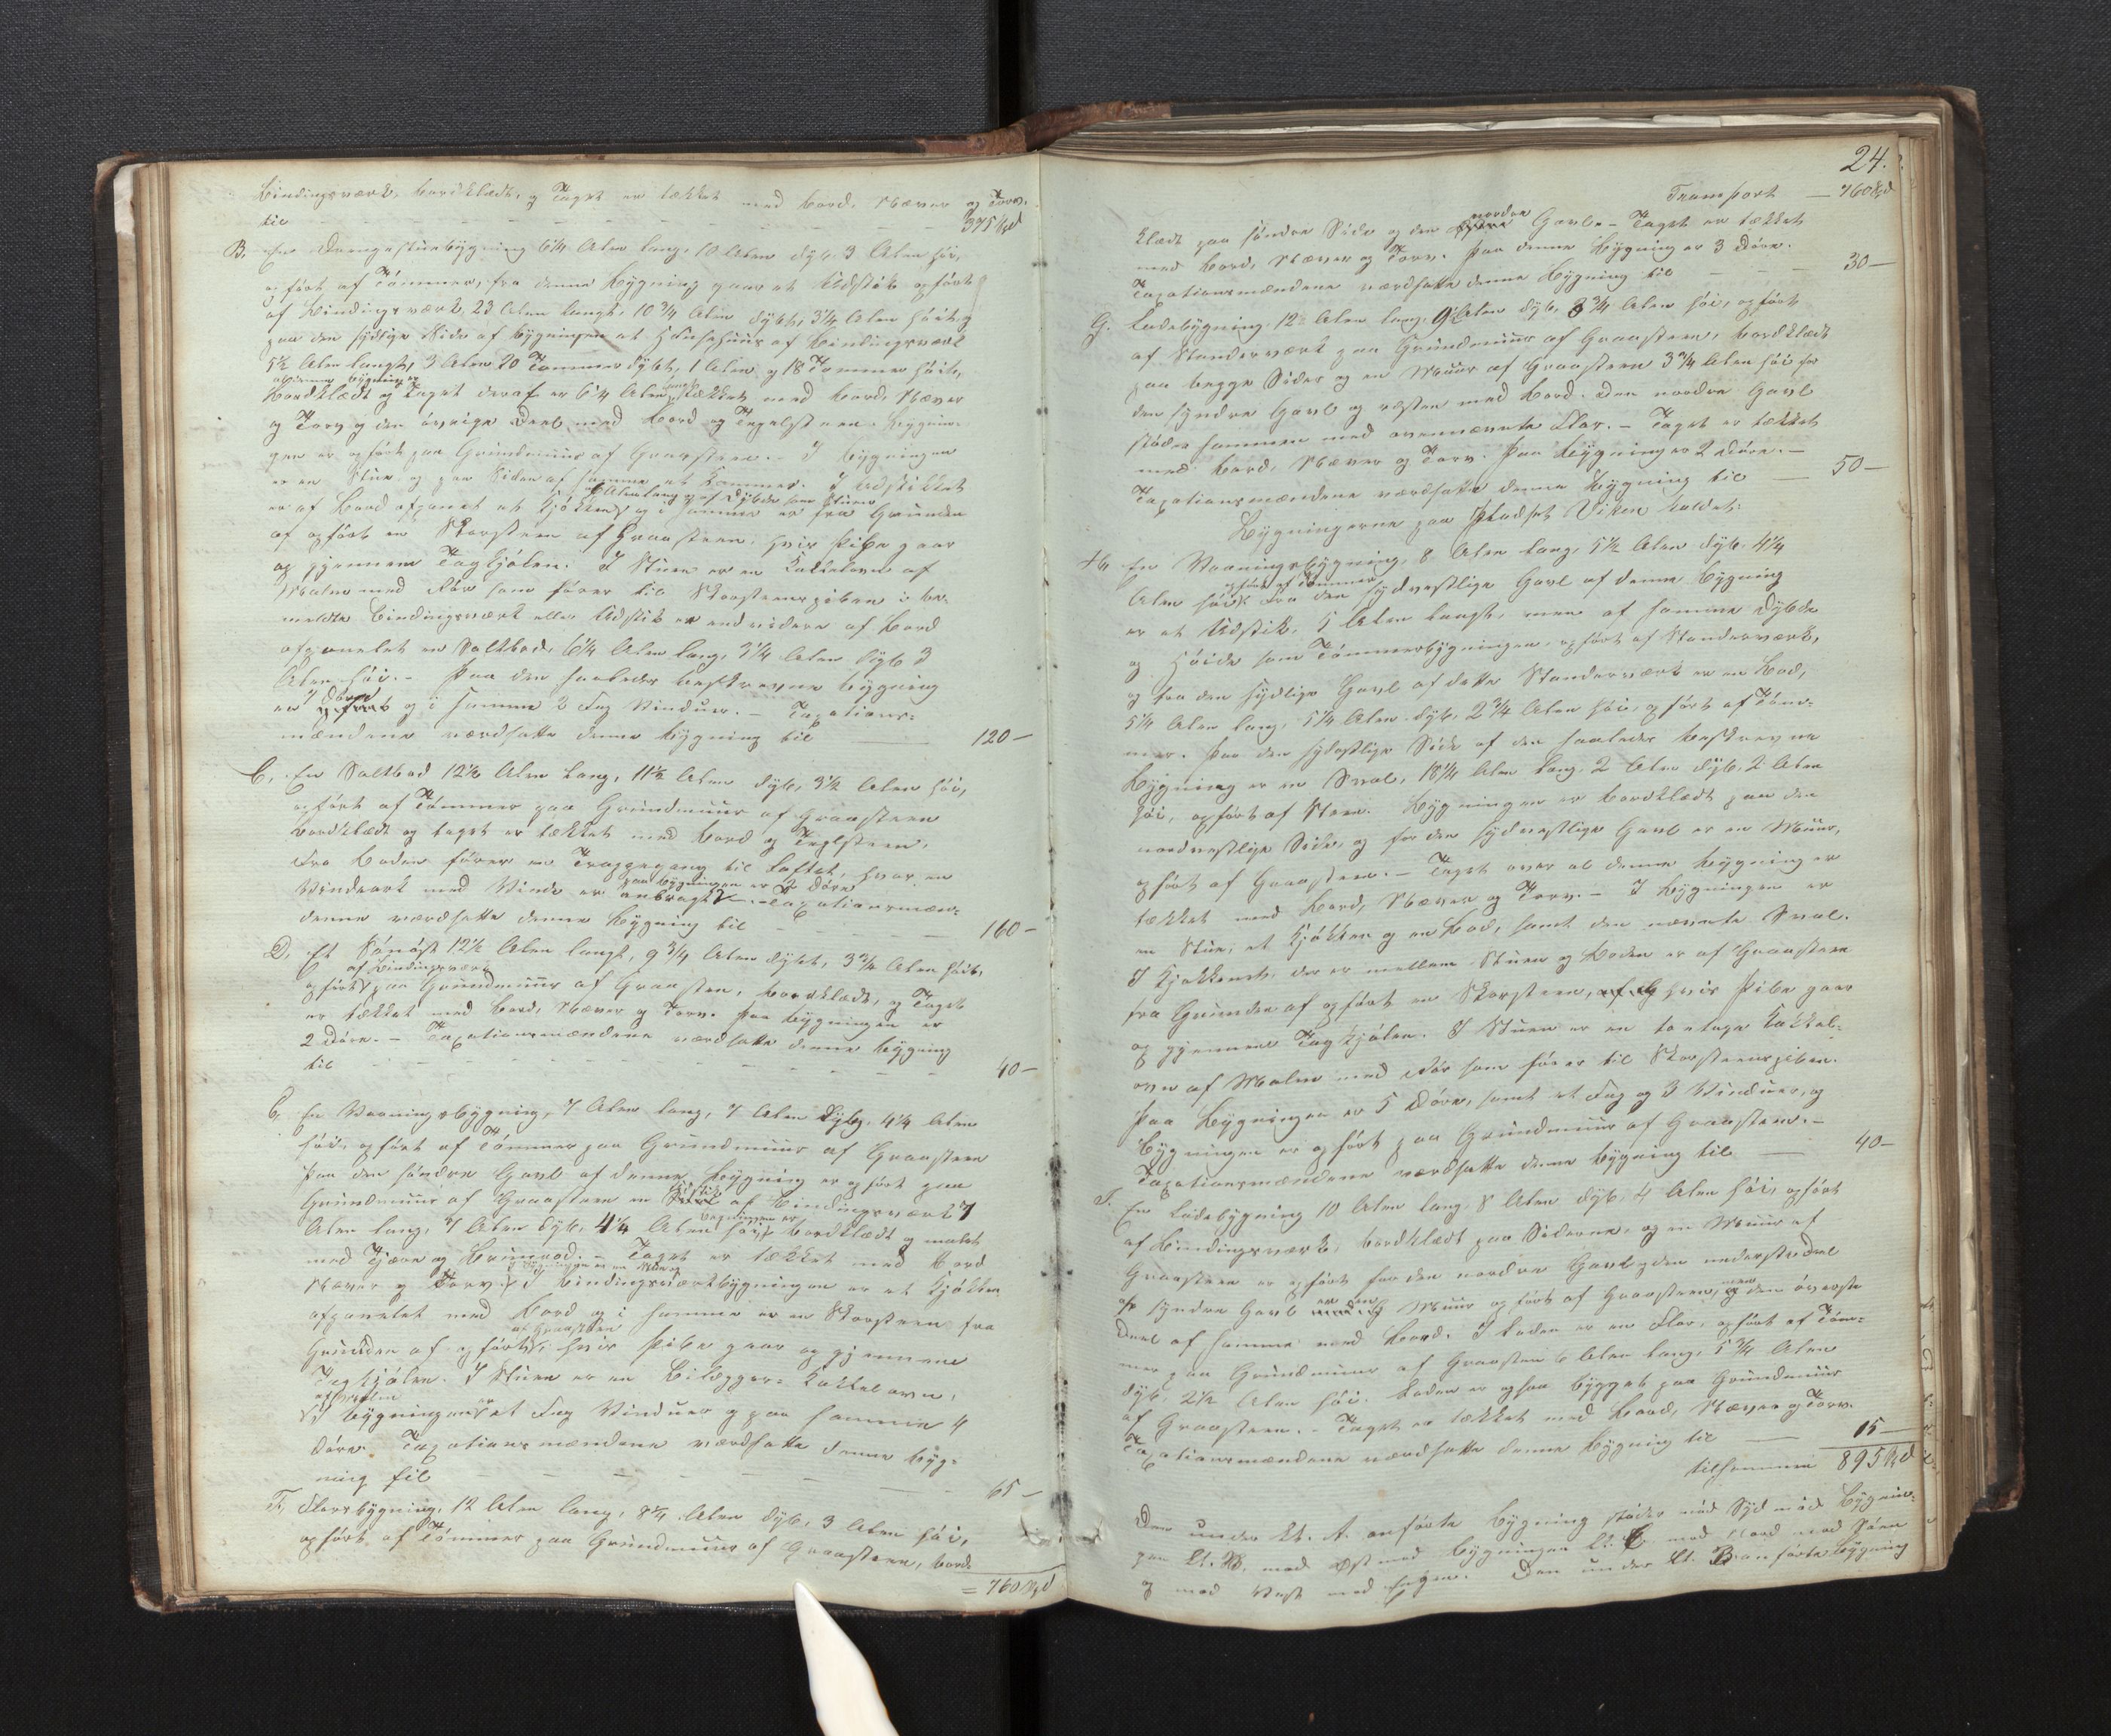 Bindingsværk, bordklædt, og Taget er tækket med Bord, Næver og Torv.
til — 375 Spd
B, En Drengestuebygning 6¼ Alen lang, 10 Alen dyb, 3 Alen høi,
opført af Tømmer, fra denne Bygning gaar et Udstik opført
af Bindingsværk 23 Alen langt, 10¾ Alen dybt, 3¼ Alen høit og
paa den sydlige Side af bygningen et Huus af Bindingsværk
5½ Alen langt, 3 Alen 20 Tommer dybt, 1 Alen og 18 Tommer høit,
bygning er
Bordklædt og Taget deraf er 6¼ Alen langt tækket med Bord, Næver
og Torv og den øvrige Deel med Bord og Tegelsteen. Bygnin-
gen er opført paa Grundmuur af Graasteen. – I bygningen
er en Stue og paa Siden af samme et Kammer. I Udstikket
Alen lang og af Dybde som Stuen
er af Bord afpanet et Kjøkken og i samme er fra Grunden
af opført en Skorsteen af Graasteen, hvis Pibe gaar
op gjennem Tagkjølen. I Stuen er en Kakkelovn af
Malm med Rør som fører til Skorsteenspiben i be-
meldte Bindingsværk eller Udstik er endvidere af Bord
afpanelet en Saltbod, 6¼ Alen lang, 3¼ Alen dyb 3
Alen høi. – Paa den saaledes beskrevne bygning
er 7 Døre og i samme 2 Fag Vinduer. – Taxations-
mændene værdsatte denne bygning til — 120 –
C, En Saltbod 12½ Alen lang, 11½ Alen dyb, 3½ Alen høi,
opført af Tømmer paa Grundmuur af Graasteen
bordklædt og taget er tækket med Bord og Teglsteen.
Fra Boden fører en Trappegang til Loftet, hvor en
paa bygningen er 2 Døre
Vindeark med Vinde er anbragt. – Taxationsmæn-
dene værdsatte denne Bygning til — 160 –
D, Et Sønøst 12½ Alen langt, 9¾ Alen dybt, 3¾ Alen høit,
af Bindingsværk
opført paa Grundmuur af Graasteen, bordklædt, og Taget
er tækket med Bord, Næver og Torv. Paa bygningen er
2 Døre. – Taxationsmændene værdsatte denne bygning
til — 40 –
E, En Vaaningsbygning, 7 Alen lang, 7 Alen dyb, 4¼ Alen
høi, opført af Tømmer paa Grundmuur af Graasteen
Paa den søndre Gavl af denne Bygning er opført paa
Grundmuur af Graasteen en Udstik af Bindingsværk 7
Alen lang, 7 Alen dyb, 4¼ Alen høi, bygningen er bordklædt og malet
med Tjære og Bruunrød. – Taget er tækket med Bord
I bygningen er en Stue og
Næver og Torv. I bindingsværkbygningen er et Kjøkken
afpanelet med Bord og i samme er en Skorsteen fra
af Graasteen
Grunden af opført, hvis Pibe gaar op gjennem
Tagkjølen. I Stuen er en Bilægger-Kakkelovn,
af Malm
I bygningen er et Fag Vinduer og paa samme 4
Døre. Taxationsmændene værdsatte denne byg-
ning til — 65 –
F, Floersbygning, 12 Alen lang, 8¼ Alen dyb, 3 Alen høi,
opført af Tømmer paa Grundmuur af Graasteen, bord-
= 760 Spd
24.
Transport — 760 Spd
klædt paa søndre Side og den nordre Gavl. – Taget er tækket
med Bord, Næver og Torv. Paa denne Bygning er 3 Døre.
Taxationsmændene værdsatte denne Bygning til — 30 –
G. Ladebygning 12 Alen lang, 9 Alen dyb, 3¾ Alen høi, opført
af Standerværk paa Grundmuur af Graasteen, bordklædt
paa begge Sider og en Muur af Graasteen 3¾ Alen høi for
den syndre Gavl og resten med Bord. Den nordre Gavl
støder sammen med ovennævnte Flor. – Taget er tækket
med Bord, Næver og Torv. Paa bygning er 2 Døre. –
Taxationsmændene værdsatte denne Bygning til — 50 –
Bygningerne paa Pladset Viken kaldet:
H, En Vaaningsbygning, 8 Alen lang, 5½ Alen dyb, 4¼
opført af Tømmer
Alen høi. Fra den sydvestlige Gavl af denne bygning
er et Udstik, 5 Alen langt, men af samme Dybde
og Høide som Tømmerbygningen, opført af Standerværk,
og fra den sydlige Gavl af dette Standerværk er en Bod,
5¼ Alen lang, 5¼ Alen dyb, 2¾ Alen høi, opført af Tøm-
mer. Paa den sydostlige Side af den saaledes beskrevne
Bygning er en Sval, 18¼ Alen lang, 2 Alen dyb, 2 Alen
høi, opført af Steen. Bygningen er bordklædt paa den
nordvestlige Side, og for den sydvestlige Gavl er en Muur,
opført af Graasteen. – Taget over al denne bygning er
tækket med Bord, Næver og Torv. – I bygningen er
en Stue, et Kjøkken og en Bod, samt den nævnte Sval.
I Kjøkkenet, der er mellem Stuen og Boden er af Graasteen
fra Grunden af opført en Skorsteen, hvis Pibe gaar
op gjennem Tagkjølen. I Stuen er en to etages Kakkel-
ovn af Malm med Rør som fører til Skorsteenspiben.
Paa Bygningen er 5 Døre, samt et Fag og 3 Vinduer, og
bygningen er opført paa Grundmuur af Graasteen. –
Taxationsmændene værdsatte denne bygning til — 40 –
I. En Ladebygning 10 Alen lang, 8 Alen dyb, 4 Alen høi, opført
af Bindingsværk, bordklædt paa Siderne, og en Muur af
Graasteen er opført for den nordre Gavl og den nederste Deel
af syndre Gavl er en Muur opført af Graasteen, men den øverste
Deel af samme med Bord. I Laden er en Flor, opført af Tøm-
mer paa Grundmuur af Graasteen 6 Alen lang, 5¾ Alen
dyb, 2½ Alen høi. Laden er ogsaa bygget paa Grundmuur
af Graasteen. – Taget er tækket med Bord, Næver og Torv.
Taxationsmændene værdsatte denne bygning til — 15 –
tilsammen 895 Spd
Den under Lt. A. anførte bygning støder mod Syd mod bygnin-
gen Lt. B, mod Øst mod bygningen Lt. C mod Nord mod Søen
og mod Vest mod Engen. Den under Lt. B anførte bygning